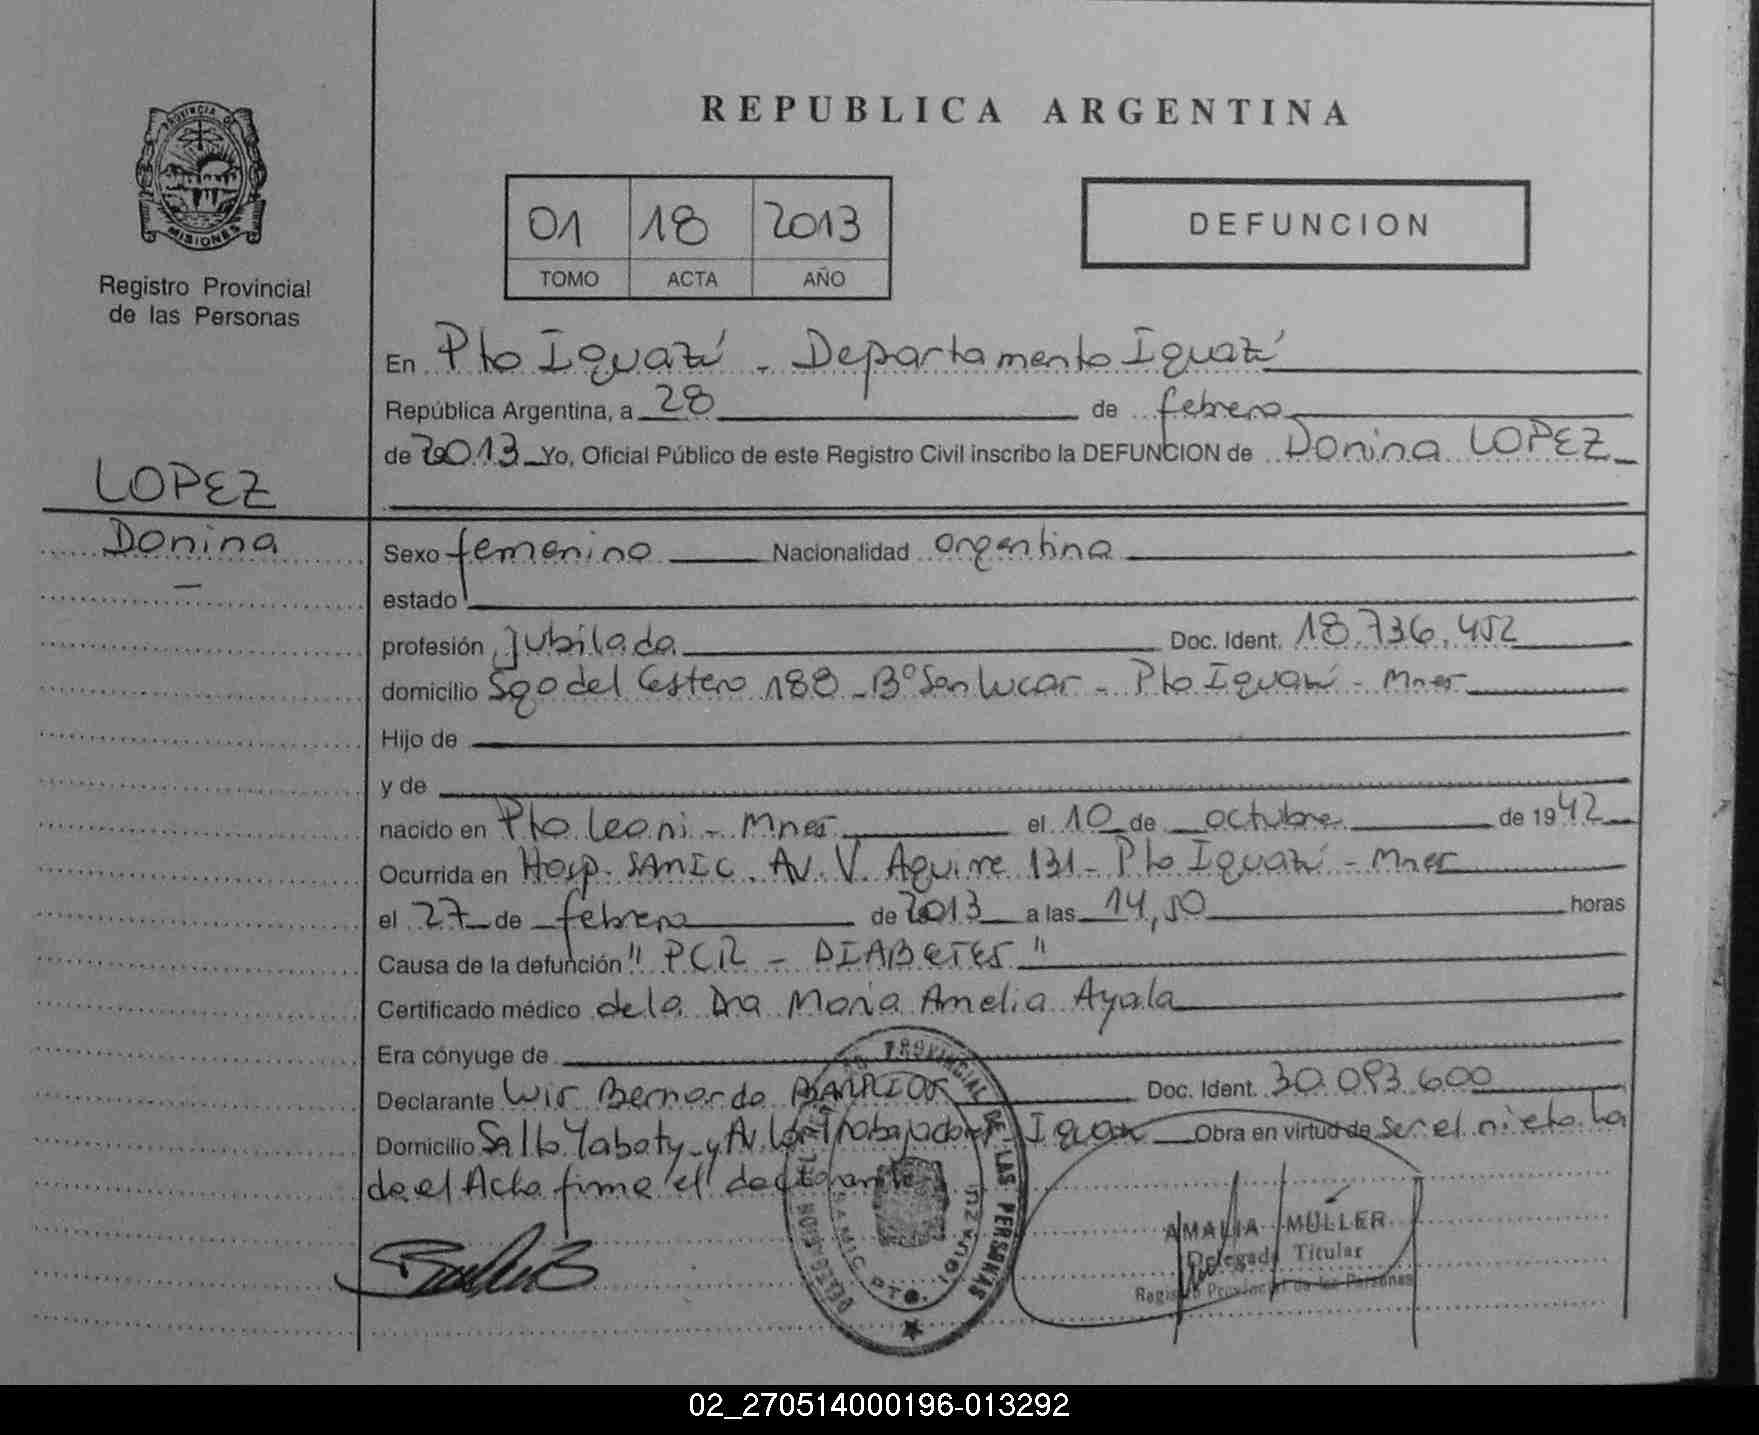 REPUBLICA ARGENTINA
PROVINCIA DE
MISIONES
Registro Provincial
de las Personas
01 18 2013
TOMO ACTA AÑO
DEFUNCION
En Pto Iguazú - Departamento Iguazú
República Argentina, a 28 de febrero
de 2013 Yo, Oficial Público de este Registro Civil inscribo la DEFUNCION de Donina LOPEZ
LOPEZ
Donina
Sexo femenino Nacionalidad argentina
estado
profesión jubilada Doc. Ident. 18.736.452
domicilio Sgo del Estero 188 - B° San Lucar - Pto Iguazú - Mnes
Hijo de
y de
nacido en Pto Leoni - Mnes el 10 de octubre de 1942
Ocurrida en Hosp. SAMIC. Av. V. Aguirre 131 - Pto Iguazú - Mnes
el 27 de febrero de 2013 a las 14,50 horas
Causa de la defunción "PCR - DIABETES"
Certificado médico de la Dra Maria Amelia Ayala
Era cónyuge de
Declarante Luis Bernardo BARRIOS Doc. Ident. 30.093.600
Domicilio Yaboty y Av. Los Trabajadores Obra en virtud de ser el nieto
el Acta firma el declarante
PROVINCIAL DE LAS PERSONAS
SAMIC PTO. IGUAZU
AMALIA MULLER
Delegada Titular
Registro Provincial de las Personas
02_270514000196-013292